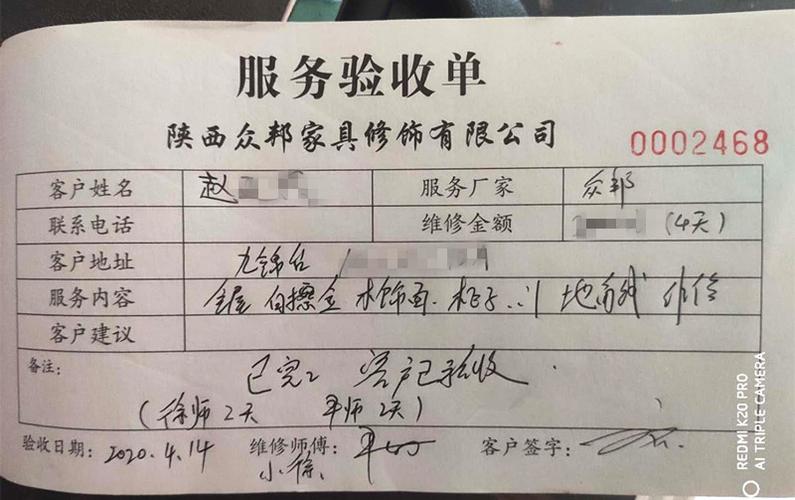 服务验收单
陕西众邦家具修饰有限公司
0002468
客户姓名 赵 服务厂家 众邦
联系电话 维修金额 (4天)
客户地址 九锦台
服务内容 全屋 白擦金 木饰面. 柜子. 门 地
客户建议
备注: 已完工 客户已验收
(徐师2天 平师2天)
验收日期: 2020.4.14 维修师傅: 客户签字:
小徐
REDMI K20 PRO
AI TRIPLE CAMERA